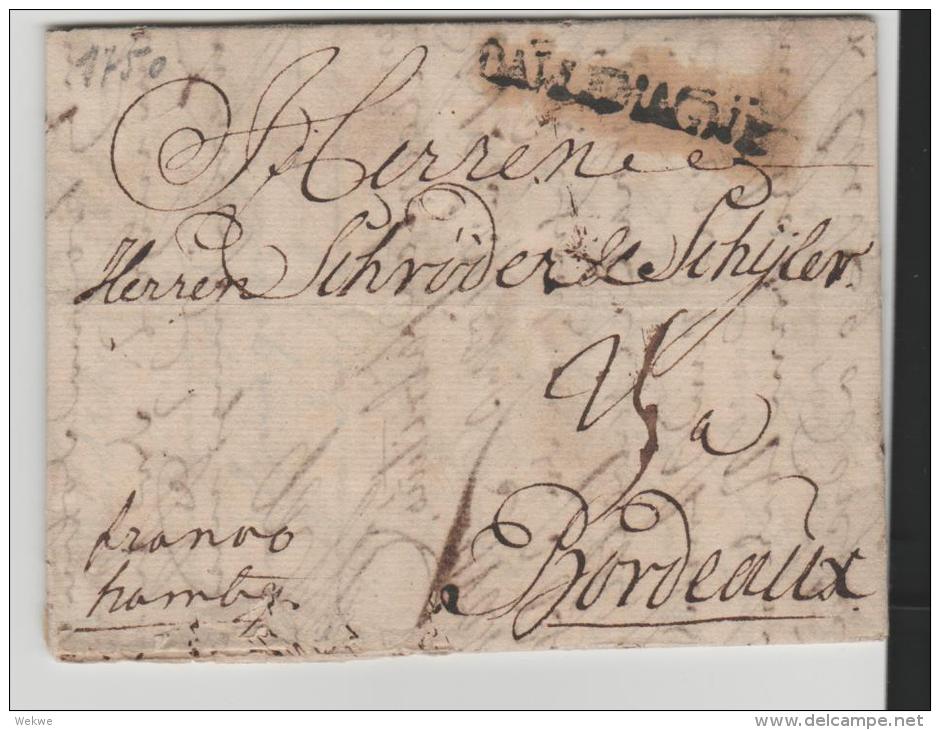 1750
Herren
Herren Schröder & Schÿler
a
Bordeaux
franco
hambg
Wekwe
www.delcampe.net